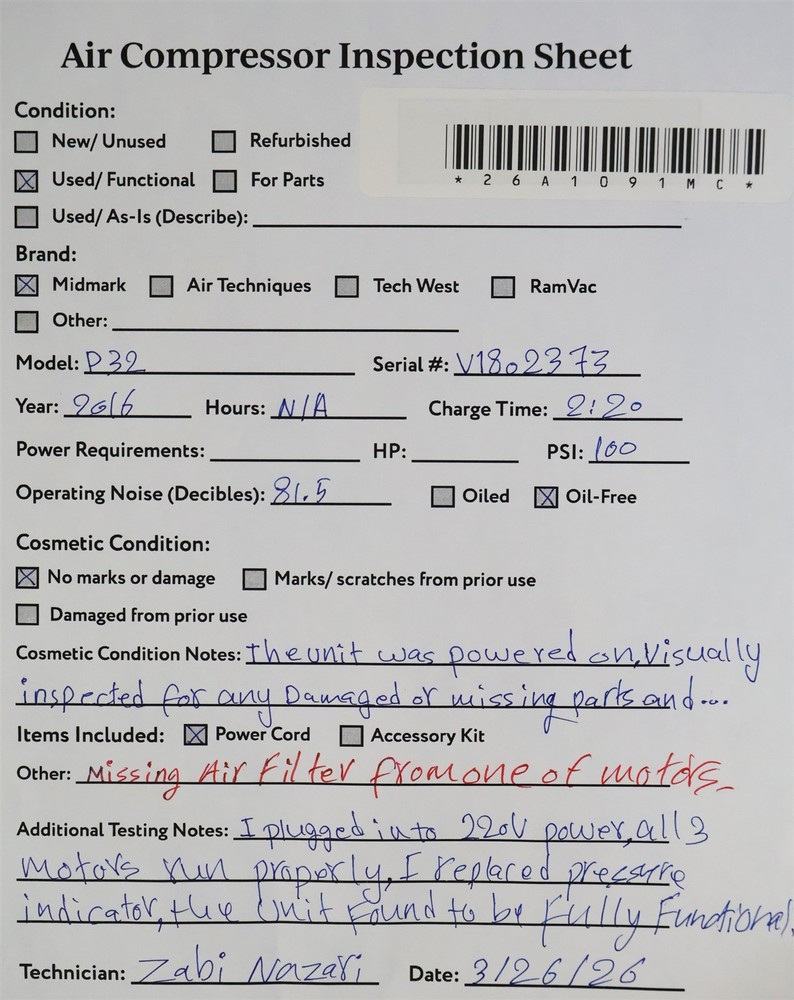 Air Compressor Inspection Sheet
Condition:
New/ Unused Refurbished
*26A1091MC*
Used/ Functional For Parts
Used/ As-Is (Describe):
Brand:
Midmark Air Techniques Tech West RamVac
Other:
Model: P32 Serial #: V1802373
Year: 2016 Hours: N/A Charge Time: 2:20
Power Requirements: HP: PSI: 100
Operating Noise (Decibles): 81.5 Oiled Oil-Free
Cosmetic Condition:
No marks or damage Marks/ scratches from prior use
Damaged from prior use
Cosmetic Condition Notes: The unit was powered on, Visually
inspected for any Damaged or missing parts and...
Items Included: Power Cord Accessory Kit
Other: Missing Air Filter from one of motors.
Additional Testing Notes: I plugged into 220V power, all 3
motors run properly, I replaced pressure
indicator, the Unit Found to be Fully Functional.
Technician: Zabi Nazari Date: 3/26/26